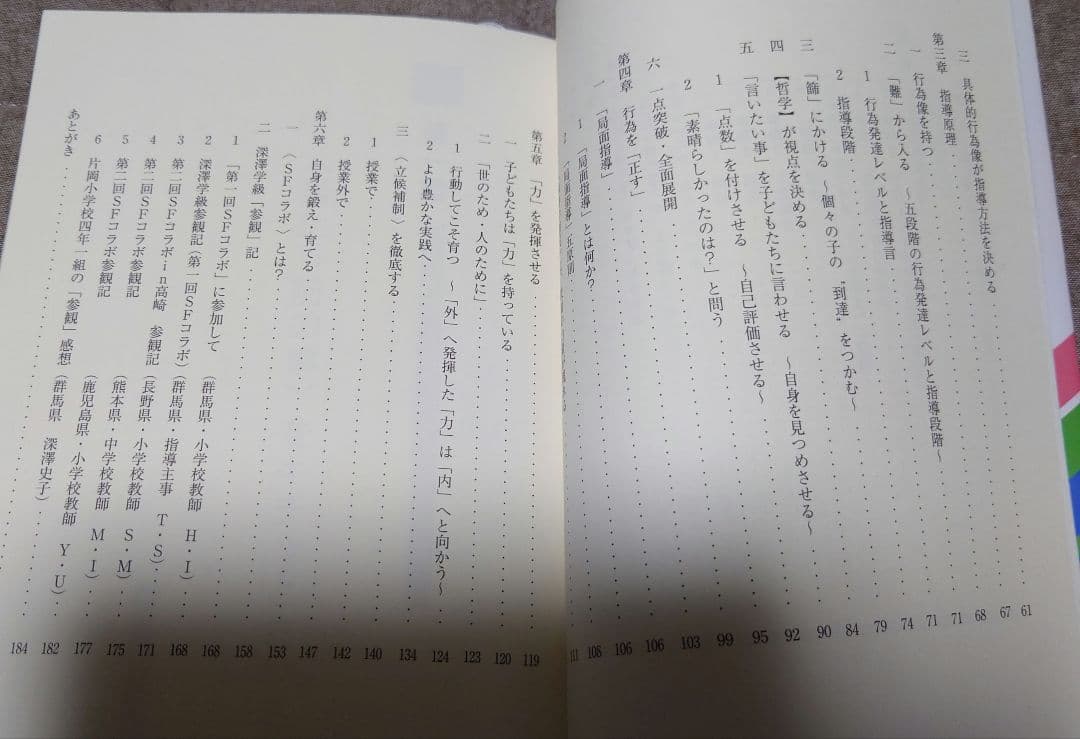 三 具体的行為像が指導方法を決める 61
第三章 指導原理 67
一 行為像を持つ 68
二 「難」から入る 〜五段階の行為発達レベルと指導段階〜 71
1 行為発達レベルと指導言 71
2 指導段階 74
三 「篩」にかける 〜個々の子の〝到達〟をつかむ〜 79
四 【哲学】が視点を決める 84
五 「言いたい事」を子どもたちに言わせる 〜自身を見つめさせる〜 90
1 「点数」を付けさせる 〜自己評価させる〜 92
2 「素晴らしかったのは?」と問う 95
六 一点突破・全面展開 99
第四章 行為を「正す」 103
一 「局面指導」 106
1 「局面指導」とは何か? 106
2 「局面指導」五原則 108
111
第五章 「力」を発揮させる 119
一 子どもたちは「力」を持っている 120
二 「世のため・人のために」 123
1 行動してこそ育つ 〜「外」へ発揮した「力」は「内」へと向かう〜 124
2 より豊かな実践へ 134
三 〈立候補制〉を徹底する 140
1 授業で 142
2 授業外で 147
第六章 自身を鍛え・育てる 153
一 〈SFコラボ〉とは? 158
二 深澤学級「参観」記 168
1 「第一回SFコラボ」に参加して (群馬県・小学校教師 H・I) 168
2 深澤学級参観記(第一回SFコラボ) (群馬県・指導主事 T・S) 171
3 第二回SFコラボin高崎 参観記 (長野県・小学校教師 S・M) 175
4 第二回SFコラボ参観記 (熊本県・中学校教師 M・I) 177
5 第二回SFコラボ参観記 (鹿児島県・小学校教師 Y・U) 182
6 片岡小学校四年一組の「参観」感想 (群馬県 深澤史子) 184
あとがき